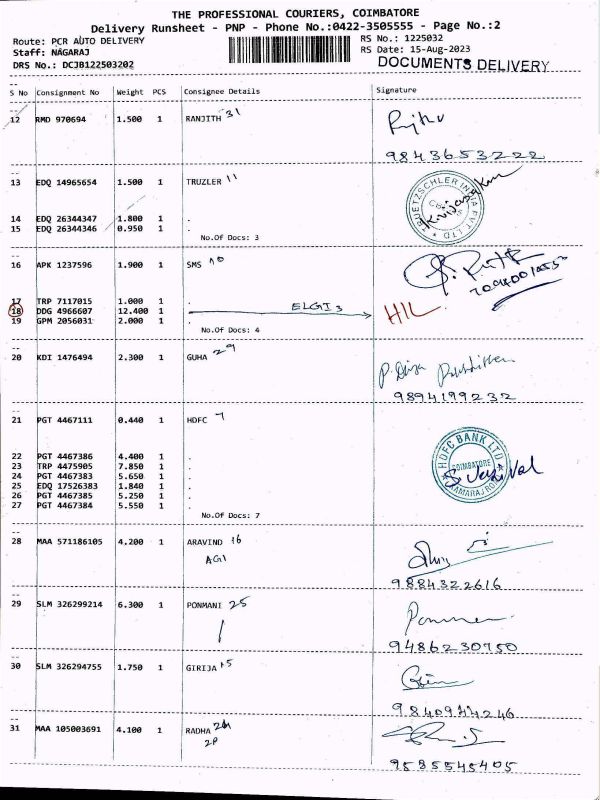 THE PROFESSIONAL COURIERS, COIMBATORE
Delivery Runsheet - PNP - Phone No.:0422-3505555 - Page No.:2
Route: PCR AUTO DELIVERY RS No.: 1225032
Staff: NAGARAJ RS Date: 15-Aug-2023
DRS No.: DCJB122503202 DOCUMENTS DELIVERY
S No Consignment No Weight PCS Consignee Details Signature
12 RMD 970694 1.500 1 RANJITH 31
9843653222
13 EDQ 14965654 1.500 1 TRUZLER 11
14 EDQ 26344347 1.800 1 .
15 EDQ 26344346 0.950 1 .
No.Of Docs: 3
16 APK 1237596 1.900 1 SMS 10
17 TRP 7117015 1.000 1 .
18 DDG 4966607 12.400 1 ELGI 3 HIL
19 GPM 2056031 2.000 1 .
No.Of Docs: 4
20 KDI 1476494 2.300 1 GUHA 29
9894199232
21 PGT 4467111 0.440 1 HDFC 7
HDFC BANK LTD
COIMBATORE
22 PGT 4467386 4.400 1 .
23 TRP 4475905 7.850 1 .
24 PGT 4467383 5.650 1 .
25 EDQ 17526383 1.840 1 .
26 PGT 4467385 5.250 1 .
27 PGT 4467384 5.550 1 .
No.Of Docs: 7
28 MAA 571186105 4.200 1 ARAVIND 16
AGI
9884322616
29 SLM 326299214 6.300 1 PONMANI 25
9486230750
30 SLM 326294755 1.750 1 GIRIJA 15
9840944246
31 MAA 105003691 4.100 1 RADHA
2P
9585545405